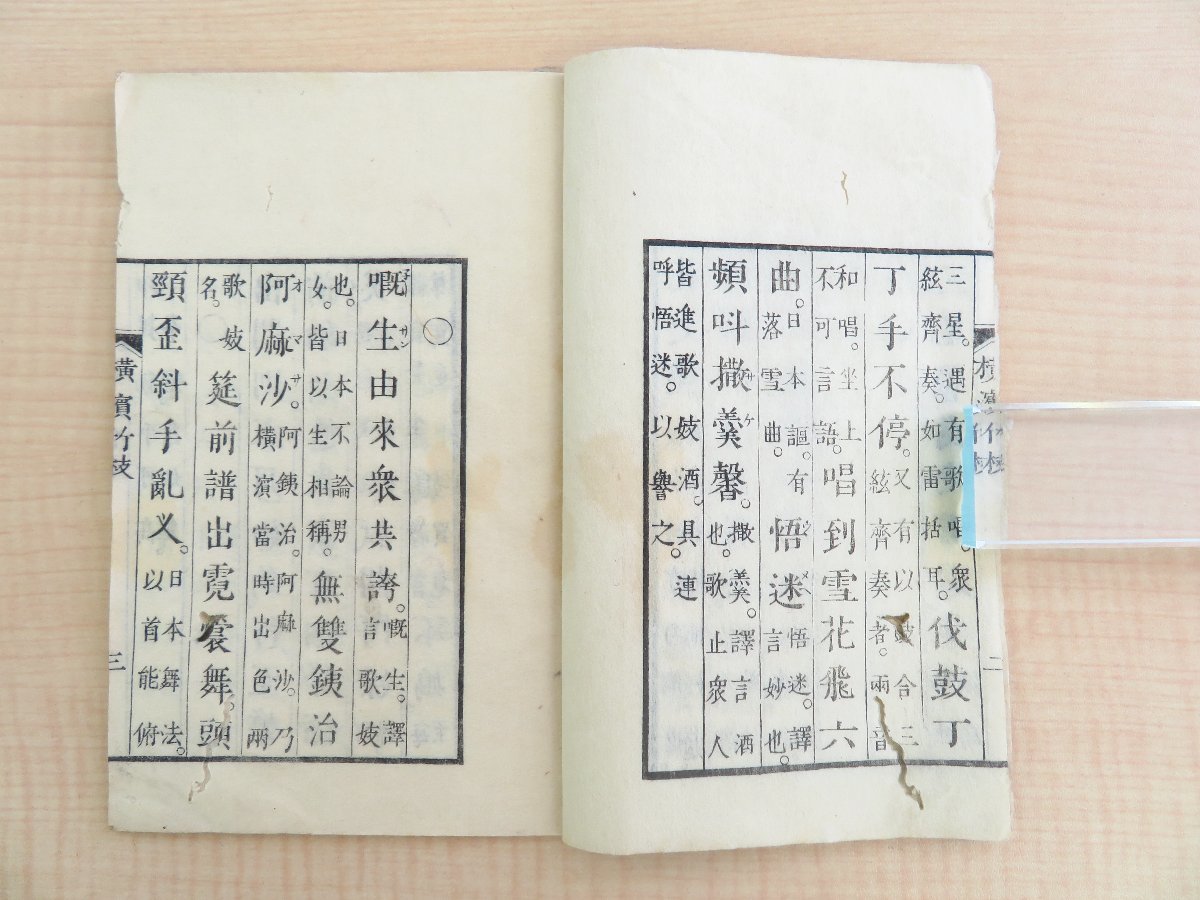 橫濱竹枝
二
三星。遇有歌唱。衆絃齊奏。如雷括耳。伐鼓丁
丁手不停。又有以鼓合三絃齊奏者。兩音
和唱。坐上不可言語。唱到雪花飛六
曲。日本謳有落雪曲。悟迷悟迷。譯言妙也。
頻呌撒羹馨。撒羹。譯言酒也。歌止衆人
皆進歌妓酒。具連呼悟迷。以譽之。
○
嘅生由來衆共誇。嘅生。譯言歌妓
也。日本不論男女。皆以生相稱。無雙銕治
阿麻沙。阿銕治。阿麻沙。乃橫濱當時出色兩
歌妓名。筵前譜出霓裳舞。頭
頸歪斜手亂义。日本舞法。以首能俯
橫濱竹枝
三